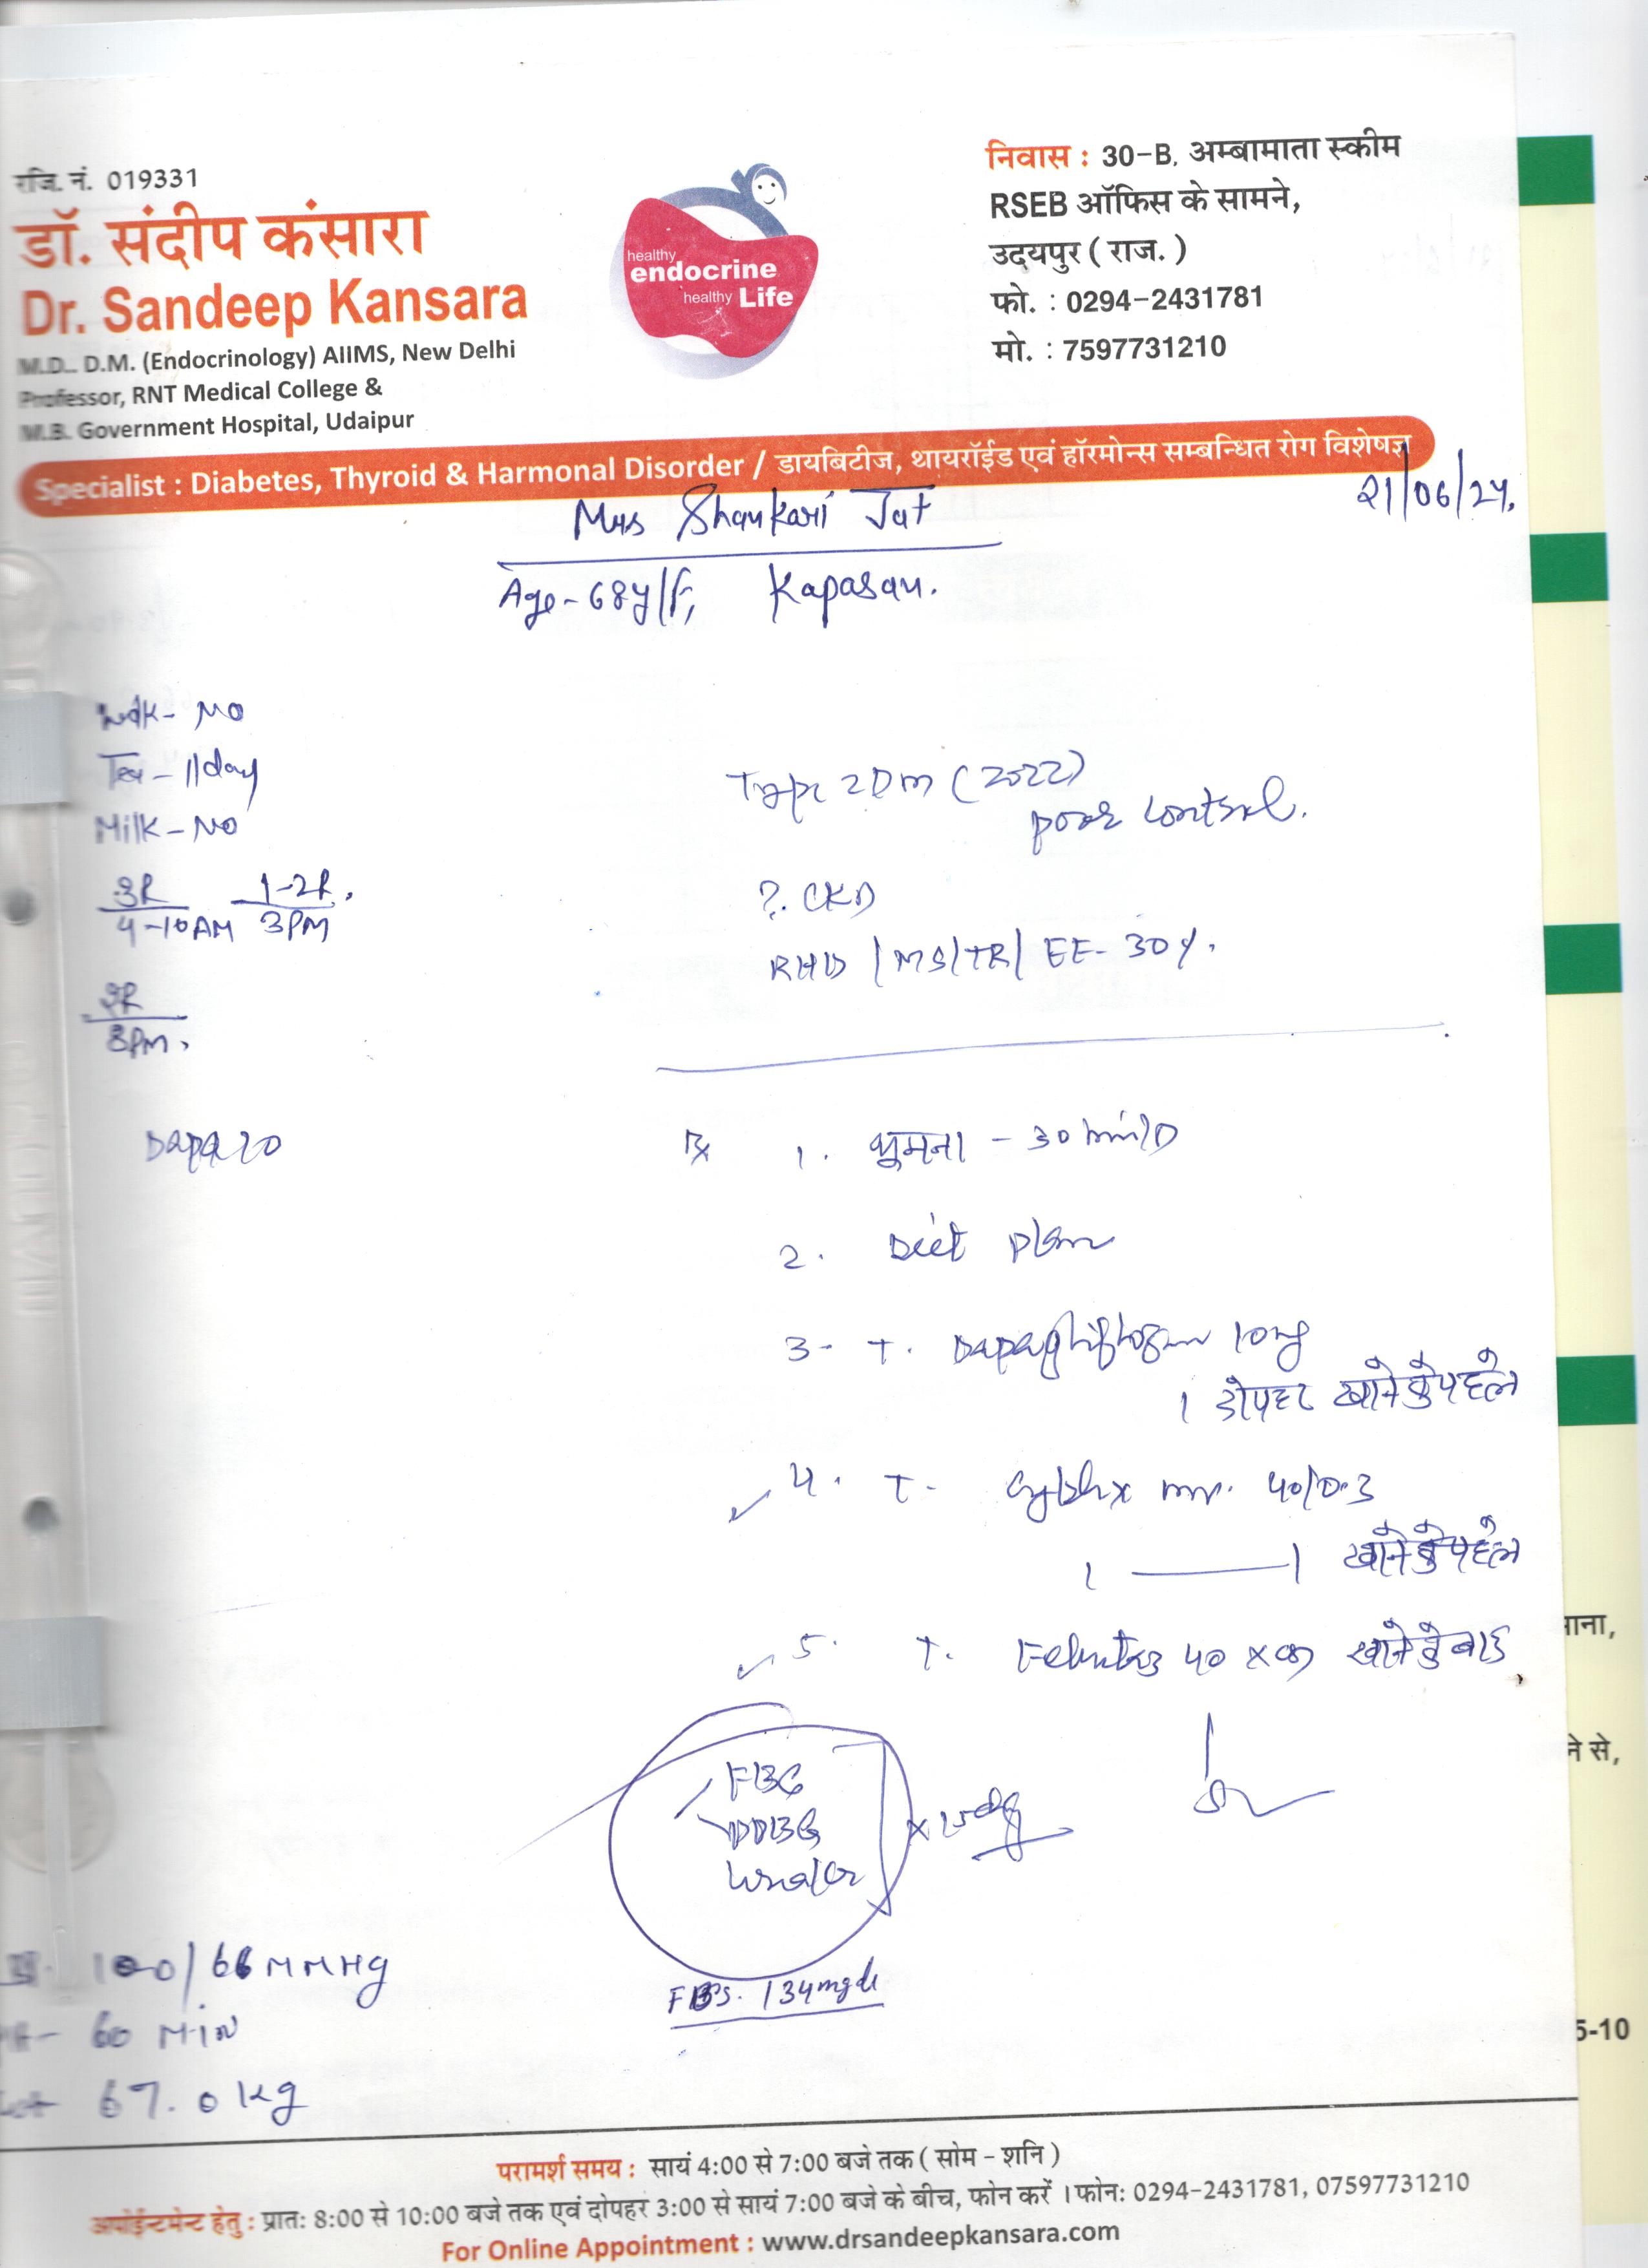 रजि. नं. 019331
डॉ. संदीप कंसारा
Dr. Sandeep Kansara
M.D. D.M. (Endocrinology) AIIMS, New Delhi
Professor, RNT Medical College &
M.B. Government Hospital, Udaipur
healthy
endocrine
healthy Life
निवास : 30-B, अम्बामाता स्कीम
RSEB ऑफिस के सामने,
उदयपुर ( राज. )
फो. : 0294-2431781
मो. : 7597731210
Specialist : Diabetes, Thyroid & Harmonal Disorder / डायबिटीज, थायरॉईड एवं हॉरमोन्स सम्बन्धित रोग विशेषज्ञ
21/06/24.
Mrs Shankari Jat
Age- 68y/F, Kapasan.
Walk- NO
Tea - 1/day
Milk - NO
3R 1-2R.
9-10AM 3PM
2R
8PM.
Type 2 DM (2022)
poor control.
?. CKD
RHD / MS/TR/ EF- 30%.
Dapa 10
Rx 1. घूमना - 30 min/D
2. Diet plan
3- T. Dapagliflozin 10mg
1 दोपहर खाने के पहले
4. T- mr. 40/0.3
1 ——— 1 खाने के पहले
5. T. 40 x OD खाने के बाद
FBG
PPBG
Urea/Cr
x 15 day
FBS. 134mgdl
100/66 MMHg
60 Min
67.0 kg
ाना,
ने से,
5-10
परामर्श समय : सायं 4:00 से 7:00 बजे तक ( सोम - शनि )
अपोईन्टमेन्ट हेतु : प्रातः 8:00 से 10:00 बजे तक एवं दोपहर 3:00 से सायं 7:00 बजे के बीच, फोन करें । फोन: 0294-2431781, 07597731210
For Online Appointment : www.drsandeepkansara.com